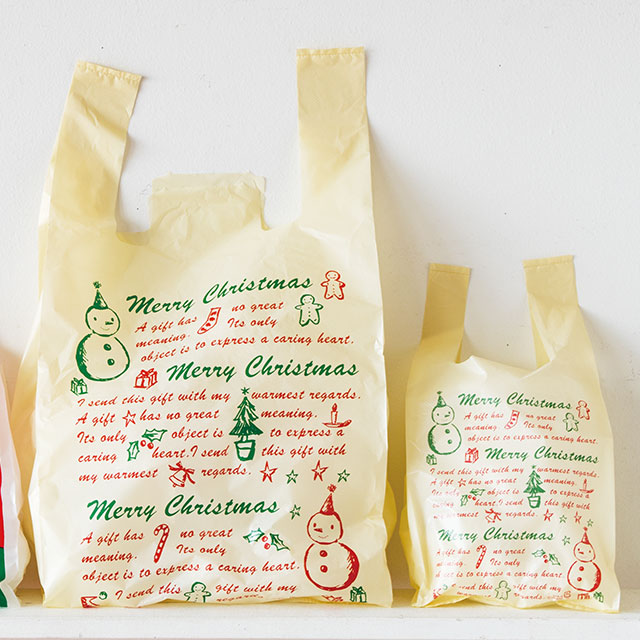 Merry Christmas
A gift has no great
meaning. Its only
object is to express a caring heart.
Merry Christmas
I send this gift with my warmest regards.
A gift has no great meaning.
Its only object is to express a
caring heart. I send this gift with
my warmest regards.
Merry Christmas
A gift has no great
meaning. Its only
object is to express a caring heart.
I send this gift with my
warmest regards.
Merry Christmas
A gift has no great
meaning. Its only
object is to express a caring heart.
Merry Christmas
I send this gift with my warmest regards.
A gift has no great meaning.
Its only object is to express a
caring heart. I send this gift with
my warmest regards.
Merry Christmas
A gift has no great
meaning. Its only
object is to express a caring heart.
I send this gift with my
warmest regards.